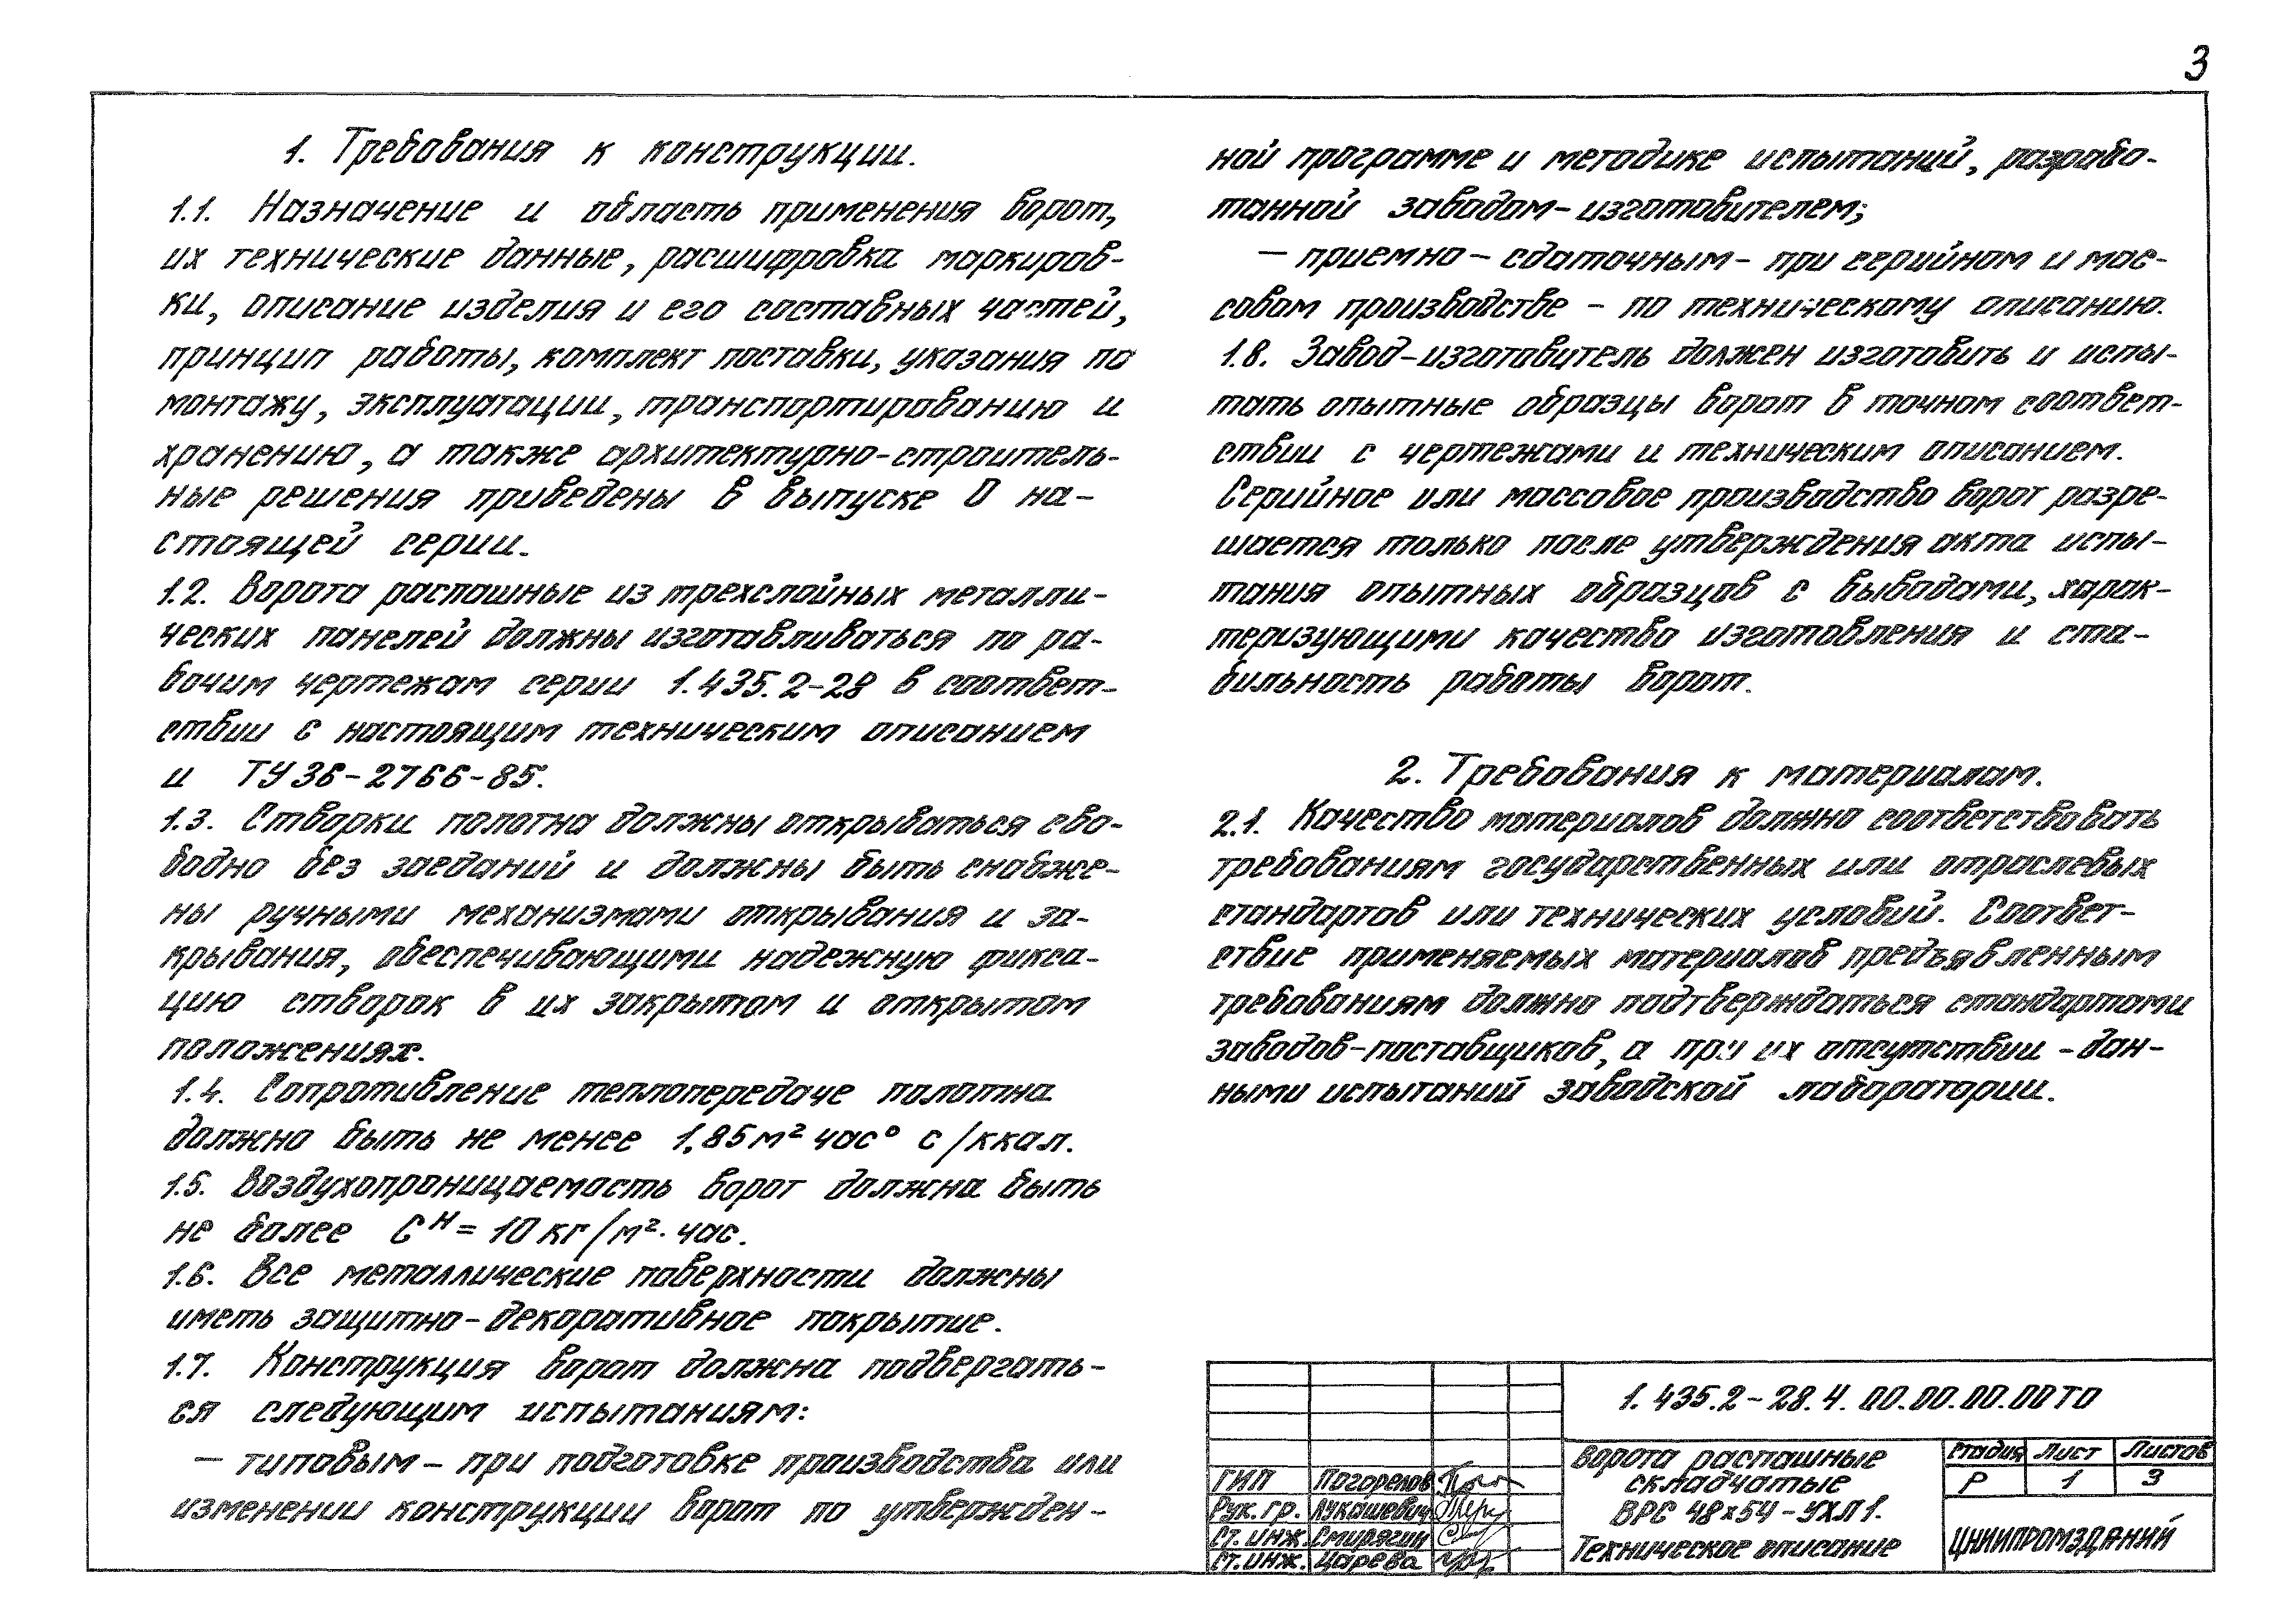 3
1. Требования к конструкции.
1.1. Назначение и область применения ворот,
их технические данные, расшифровка маркиров-
ки, описание изделия и его составных частей,
принцип работы, комплект поставки, указания по
монтажу, эксплуатации, транспортированию и
хранению, а также архитектурно-строитель-
ные решения приведены в выпуске 0 на-
стоящей серии.
1.2. Ворота распашные из трехслойных металли-
ческих панелей должны изготавливаться по ра-
бочим чертежам серии 1.435.2-28 в соответ-
ствии с настоящим техническим описанием
и ТУ 36-2766-85.
1.3. Створки полотна должны открываться сво-
бодно без заеданий и должны быть снабже-
ны ручными механизмами открывания и за-
крывания, обеспечивающими надежную фикса-
цию створок в их закрытом и открытом
положениях.
1.4. Сопротивление теплопередаче полотна
должно быть не менее 1,85 м² час° с/ккал.
1.5. Воздухопроницаемость ворот должна быть
не более Cᴴ = 10 кг/м²·час.
1.6. Все металлические поверхности должны
иметь защитно-декоративное покрытие.
1.7. Конструкция ворот должна подвергать-
ся следующим испытаниям:
– типовым – при подготовке производства или
изменении конструкции ворот по утвержден-
ной программе и методике испытаний, разрабо-
танной заводом-изготовителем;
– приемно-сдаточным – при серийном и мас-
совом производстве – по техническому описанию.
1.8. Завод-изготовитель должен изготовить и испы-
тать опытные образцы ворот в точном соответ-
ствии с чертежами и техническим описанием.
Серийное или массовое производство ворот разре-
шается только после утверждения акта испы-
тания опытных образцов с выводами, харак-
теризующими качество изготовления и ста-
бильность работы ворот.
2. Требования к материалам.
2.1. Качество материалов должно соответствовать
требованиям государственных или отраслевых
стандартов или технических условий. Соответ-
ствие применяемых материалов предъявленным
требованиям должно подтверждаться стандартами
заводов-поставщиков, а при их отсутствии – дан-
ными испытаний заводской лаборатории.
1.435.2-28.4.00.00.00.00 ТО
ГИП Погорелов
Рук. гр. Лукашевич
Ст. инж. Смирягин
Ст. инж. Царева
Ворота распашные
складчатые
ВРС 48х54-УХЛ1.
Техническое описание
Стадия Лист Листов
Р 1 3
ЦНИИПРОМЗДАНИЙ